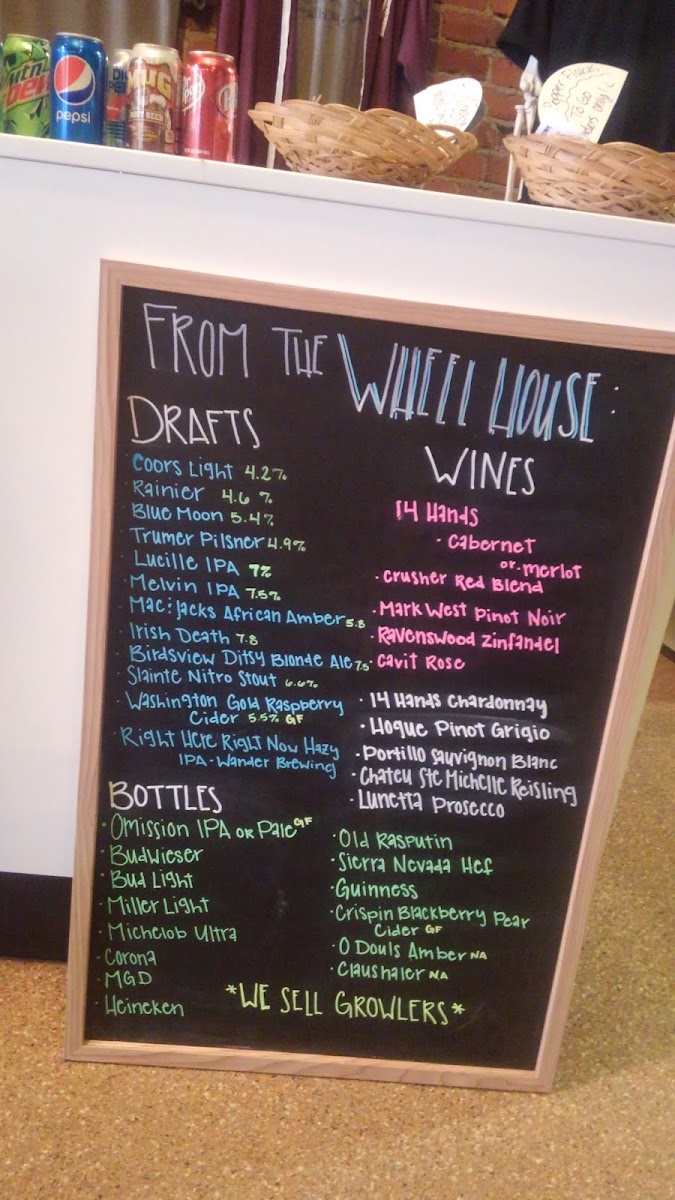 Mtn
Dew
pepsi
MUG
ROOT BEER
Dr
Pepper Flakes
To Go
orders only!
FROM THE WHEEL HOUSE:
DRAFTS
Coors Light 4.2%
Rainier 4.6 %
Blue Moon 5.4%
Trumer Pilsner 4.9%
Lucille IPA 7%
Melvin IPA 7.5%
Mac & Jacks African Amber 5.8
Irish Death 7.8
Birdsview Ditsy Blonde Ale 7.5
Slainte Nitro Stout 6.6%
Washington Gold Raspberry
Cider 5.5% GF
Right Here Right Now Hazy
IPA - Wander Brewing
WINES
14 Hands
· Cabernet
or · merlot
· Crusher Red Blend
· Mark West Pinot Noir
· Ravenswood Zinfandel
· Cavit Rose
· 14 Hands Chardonnay
· Hogue Pinot Grigio
· Portillo Sauvignon Blanc
· Chateu Ste Michelle Reisling
· Lunetta Prosecco
BOTTLES
· Omission IPA or Pale GF
· Budwieser
· Bud Light
· Miller Light
· Michelob Ultra
· Corona
· MGD
· Heineken
· Old Rasputin
· Sierra Nevada Hef
· Guinness
· Crispin Blackberry Pear
Cider GF
· O Douls Amber NA
· Claushaler NA
*WE SELL GROWLERS*